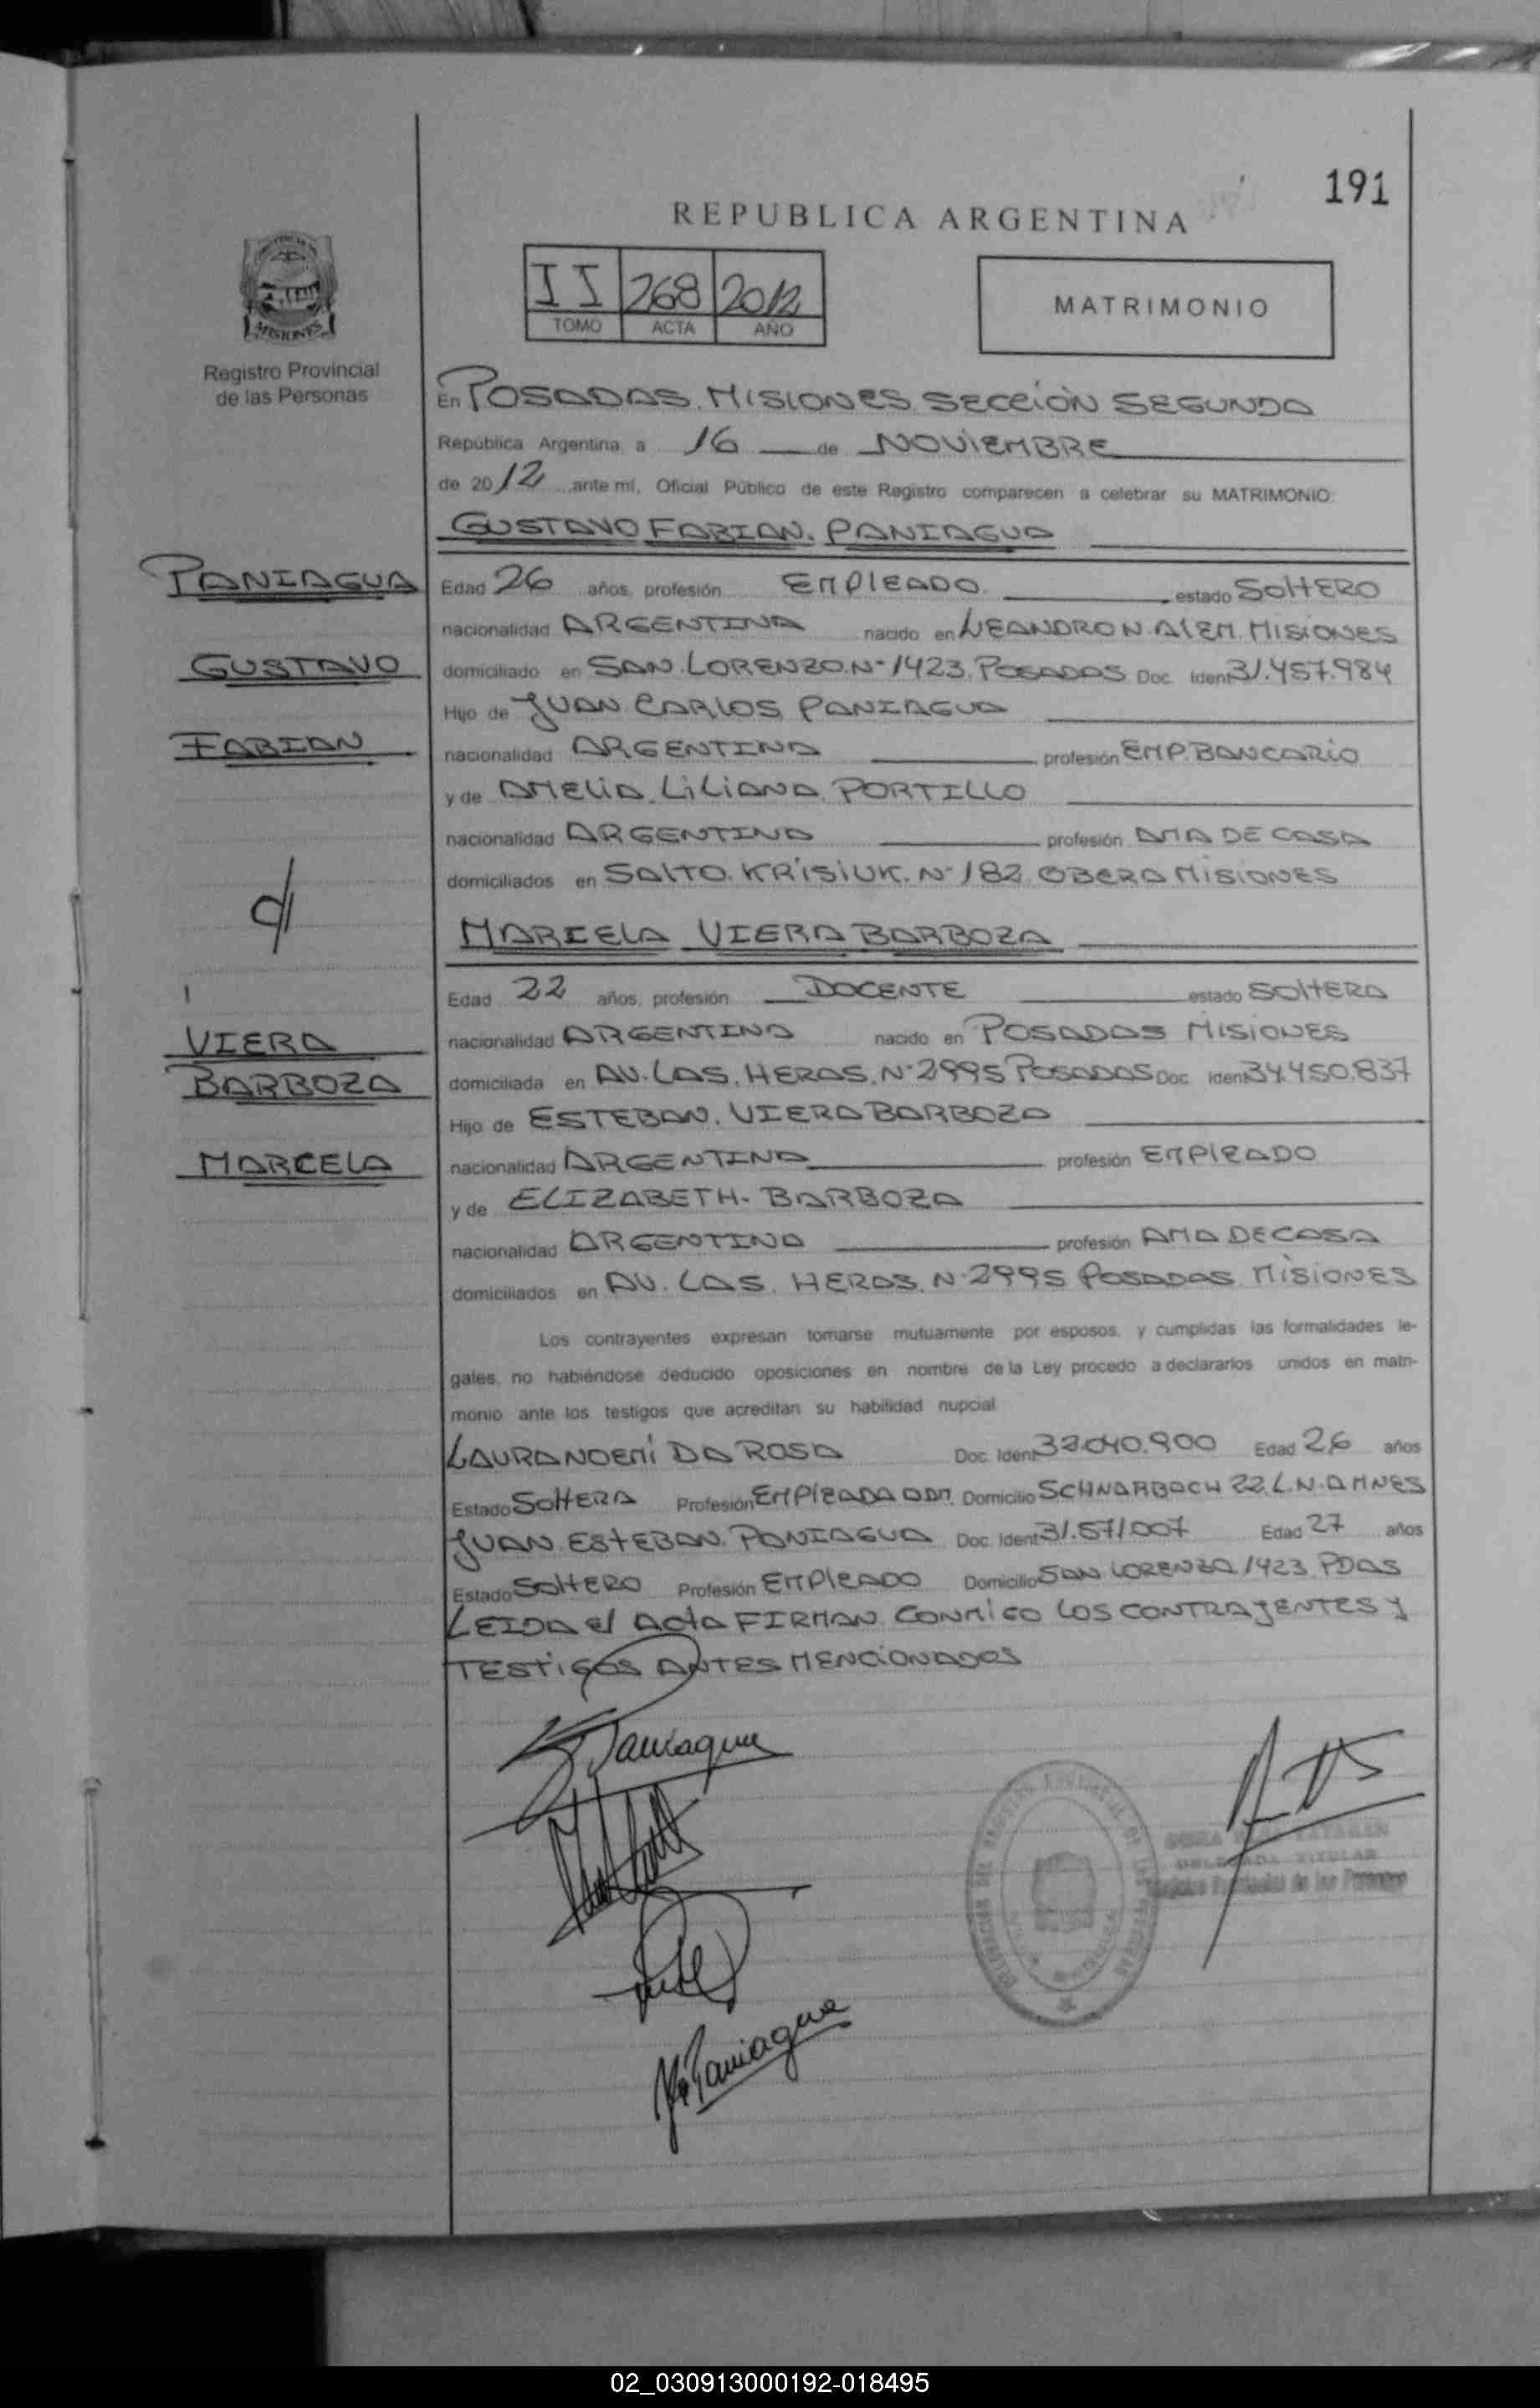 191
REPUBLICA ARGENTINA
II 268 2012
TOMO ACTA AÑO
MATRIMONIO
MISIONES
Registro Provincial
de las Personas
En POSADAS. MISIONES. SECCIÓN SEGUNDA
República Argentina, a 16 de NOVIEMBRE
de 2012 ante mí, Oficial Público de este Registro comparecen a celebrar su MATRIMONIO:
GUSTAVO FABIAN. PANIAGUA
PANIAGUA
GUSTAVO
FABIAN
Edad 26 años, profesión EMPLEADO estado SOLTERO
nacionalidad ARGENTINA nacido en LEANDRO N. ALEM. MISIONES
domiciliado en SAN. LORENZO. Nº 1423. POSADAS Doc. Ident 31.457.984
Hijo de JUAN CARLOS PANIAGUA
nacionalidad ARGENTINA profesión EMP. BANCARIO
y de AMELIA. LILIANA. PORTILLO
nacionalidad ARGENTINA profesión AMA DE CASA
domiciliados en SALTO. KRISIUK. Nº 182. OBERA MISIONES
MARCELA VIERA BARBOZA
VIERA
BARBOZA
MARCELA
Edad 22 años, profesión DOCENTE estado SOLTERA
nacionalidad ARGENTINA nacido en POSADAS MISIONES
domiciliada en AV. LAS. HERAS. Nº 2995 POSADAS Doc. Ident 34.450.837
Hijo de ESTEBAN. VIERA BARBOZA
nacionalidad ARGENTINA profesión EMPLEADO
y de ELIZABETH. BARBOZA
nacionalidad ARGENTINA profesión AMA DE CASA
domiciliados en AV. LAS. HERAS. Nº 2995 POSADAS. MISIONES
Los contrayentes expresan tomarse mutuamente por esposos, y cumplidas las formalidades le-
gales, no habiéndose deducido oposiciones en nombre de la Ley procedo a declararlos unidos en matri-
monio ante los testigos que acreditan su habilidad nupcial
LAURA NOEMI DA ROSA Doc. Ident 33.040.900 Edad 26 años
Estado SOLTERA Profesión EMPLEADA ADM. Domicilio 22 L.N.
JUAN ESTEBAN. PANIAGUA Doc. Ident 31.571.007 Edad 27 años
Estado SOLTERO Profesión EMPLEADO Domicilio SAN LORENZO 1423 PDAS
LEIDA el ACTA FIRMAN. CONMIGO LOS CONTRAJENTES Y
TESTIGOS ANTES MENCIONADOS
Paniagua
Paniagua
DELEGADA TITULAR
Registro Provincial de las Personas
02_030913000192-018495